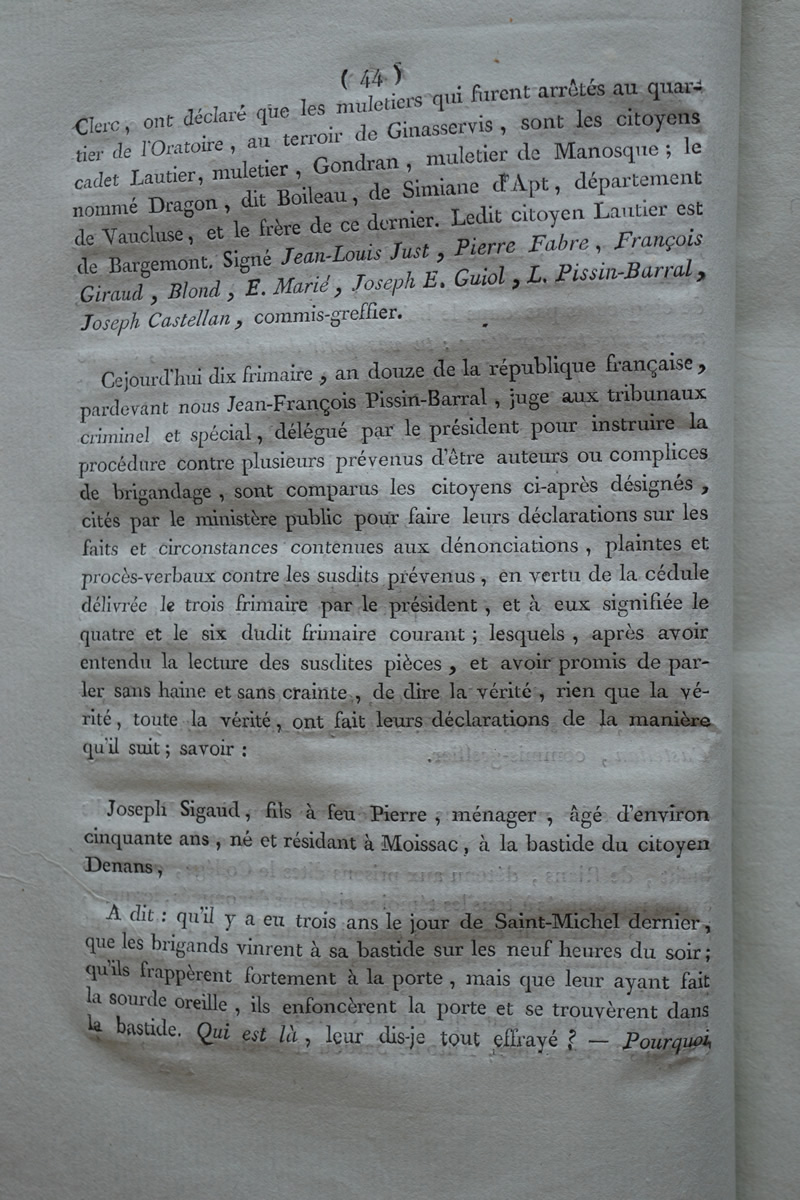 ( 44 )
Clerc, ont déclaré que les muletiers qui furent arrêtés au quar-
tier de l'Oratoire, au terroir de Ginasservis, sont les citoyens
cadet Lautier, muletier, Gondran, muletier de Manosque; le
nommé Dragon, dit Boileau, de Simiane d'Apt, département
de Vaucluse, et le frère de ce dernier. Ledit citoyen Lautier est
de Bargemont. Signé Jean-Louis Just, Pierre Fabre, François
Giraud, Blond, E. Marié, Joseph E. Guiol, L. Pissin-Barral,
Joseph Castellan, commis-greffier.
Cejourd'hui dix frimaire, an douze de la république française,
pardevant nous Jean-François Pissin-Barral, juge aux tribunaux
criminel et spécial, délégué par le président pour instruire la
procédure contre plusieurs prévenus d'être auteurs ou complices
de brigandage, sont comparus les citoyens ci-après désignés,
cités par le ministère public pour faire leurs déclarations sur les
faits et circonstances contenues aux dénonciations, plaintes et
procès-verbaux contre les susdits prévenus, en vertu de la cédule
délivrée le trois frimaire par le président, et à eux signifiée le
quatre et le six dudit frimaire courant; lesquels, après avoir
entendu la lecture des susdites pièces, et avoir promis de par-
ler sans haine et sans crainte, de dire la vérité, rien que la vé-
rité, toute la vérité, ont fait leurs déclarations de la manière
qu'il suit; savoir:
Joseph Sigaud, fils à feu Pierre, ménager, âgé d'environ
cinquante ans, né et résidant à Moissac, à la bastide du citoyen
Denans,
A dit: qu'il y a eu trois ans le jour de Saint-Michel dernier,
que les brigands vinrent à sa bastide sur les neuf heures du soir;
qu'ils frappèrent fortement à la porte, mais que leur ayant fait
la sourde oreille, ils enfoncèrent la porte et se trouvèrent dans
la bastide. Qui est là, leur dis-je tout effrayé? — Pourquoi,